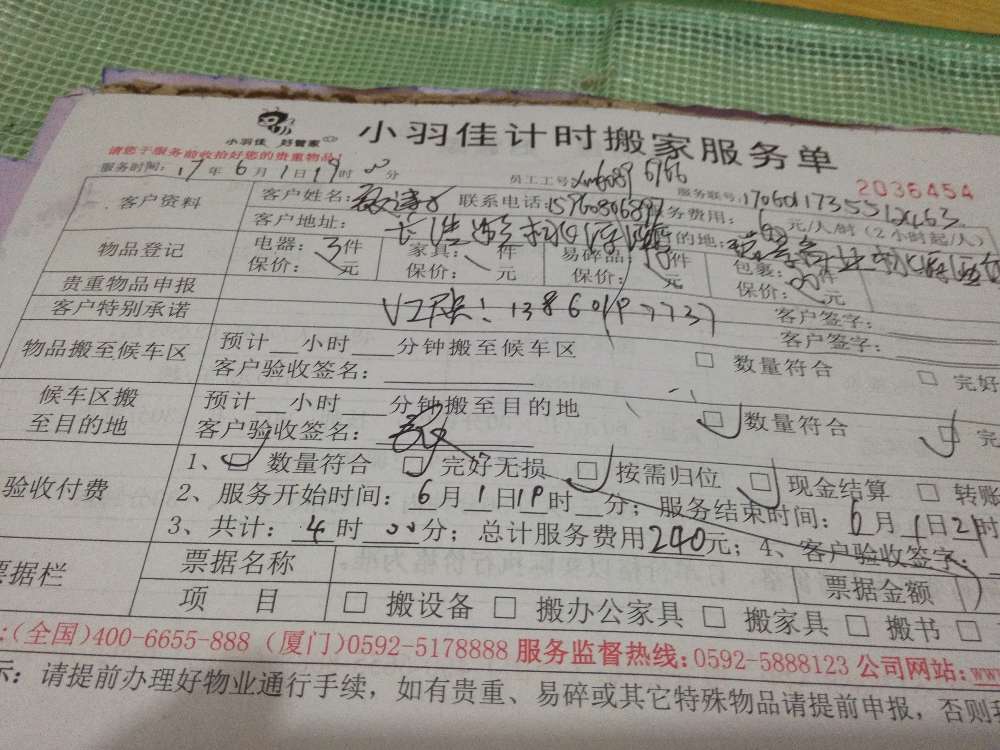 小羽佳 好管家
小羽佳计时搬家服务单
请您于服务前收拾好您的贵重物品!
2036454
服务时间: 17年6月1日19时00分 员工工号 服务联号:
客户资料 客户姓名: 联系电话: 服务费用: 60元/人/时(2小时起/人)
客户地址: 目的地:
物品登记 电器: 3件 家具: 件 易碎品: 件 包裹: 件
保价: 元 保价: 元 保价: 元 保价: 元
贵重物品申报 客户签字:
客户特别承诺 客户签字:
物品搬至候车区 预计__小时__分钟搬至候车区 □ 数量符合 □ 完好
客户验收签名:
候车区搬至目的地 预计__小时__分钟搬至目的地 □ 数量符合 □ 完
客户验收签名:
验收付费 1、□ 数量符合 □ 完好无损 □ 按需归位 □ 现金结算 □ 转账
2、服务开始时间: 6月1日19时__分; 服务结束时间: 6月1日21时
3、共计: 4时00分; 总计服务费用240元; 4、客户验收签字:
票据栏 票据名称 票据金额
项 目 □ 搬设备 □ 搬办公家具 □ 搬家具 □ 搬书 □
:(全国)400-6655-888 (厦门)0592-5178888 服务监督热线:0592-5888123 公司网站:www
示: 请提前办理好物业通行手续, 如有贵重、易碎或其它特殊物品请提前申报, 否则